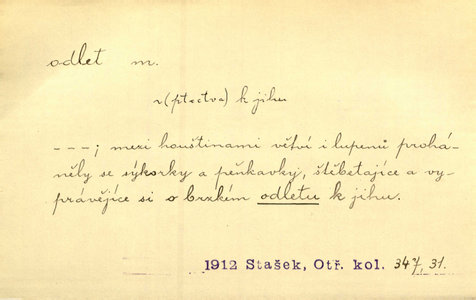 odlet m.
r (ptactva) k jihu
---; mezi houštinami větví i lupenů prohá-
něly se sýkorky a pěnkavky, štěbetajíce a vy-
právějíce si o brzkém odletu k jihu.
1912 Stašek, Otř. kol. 347, 31.